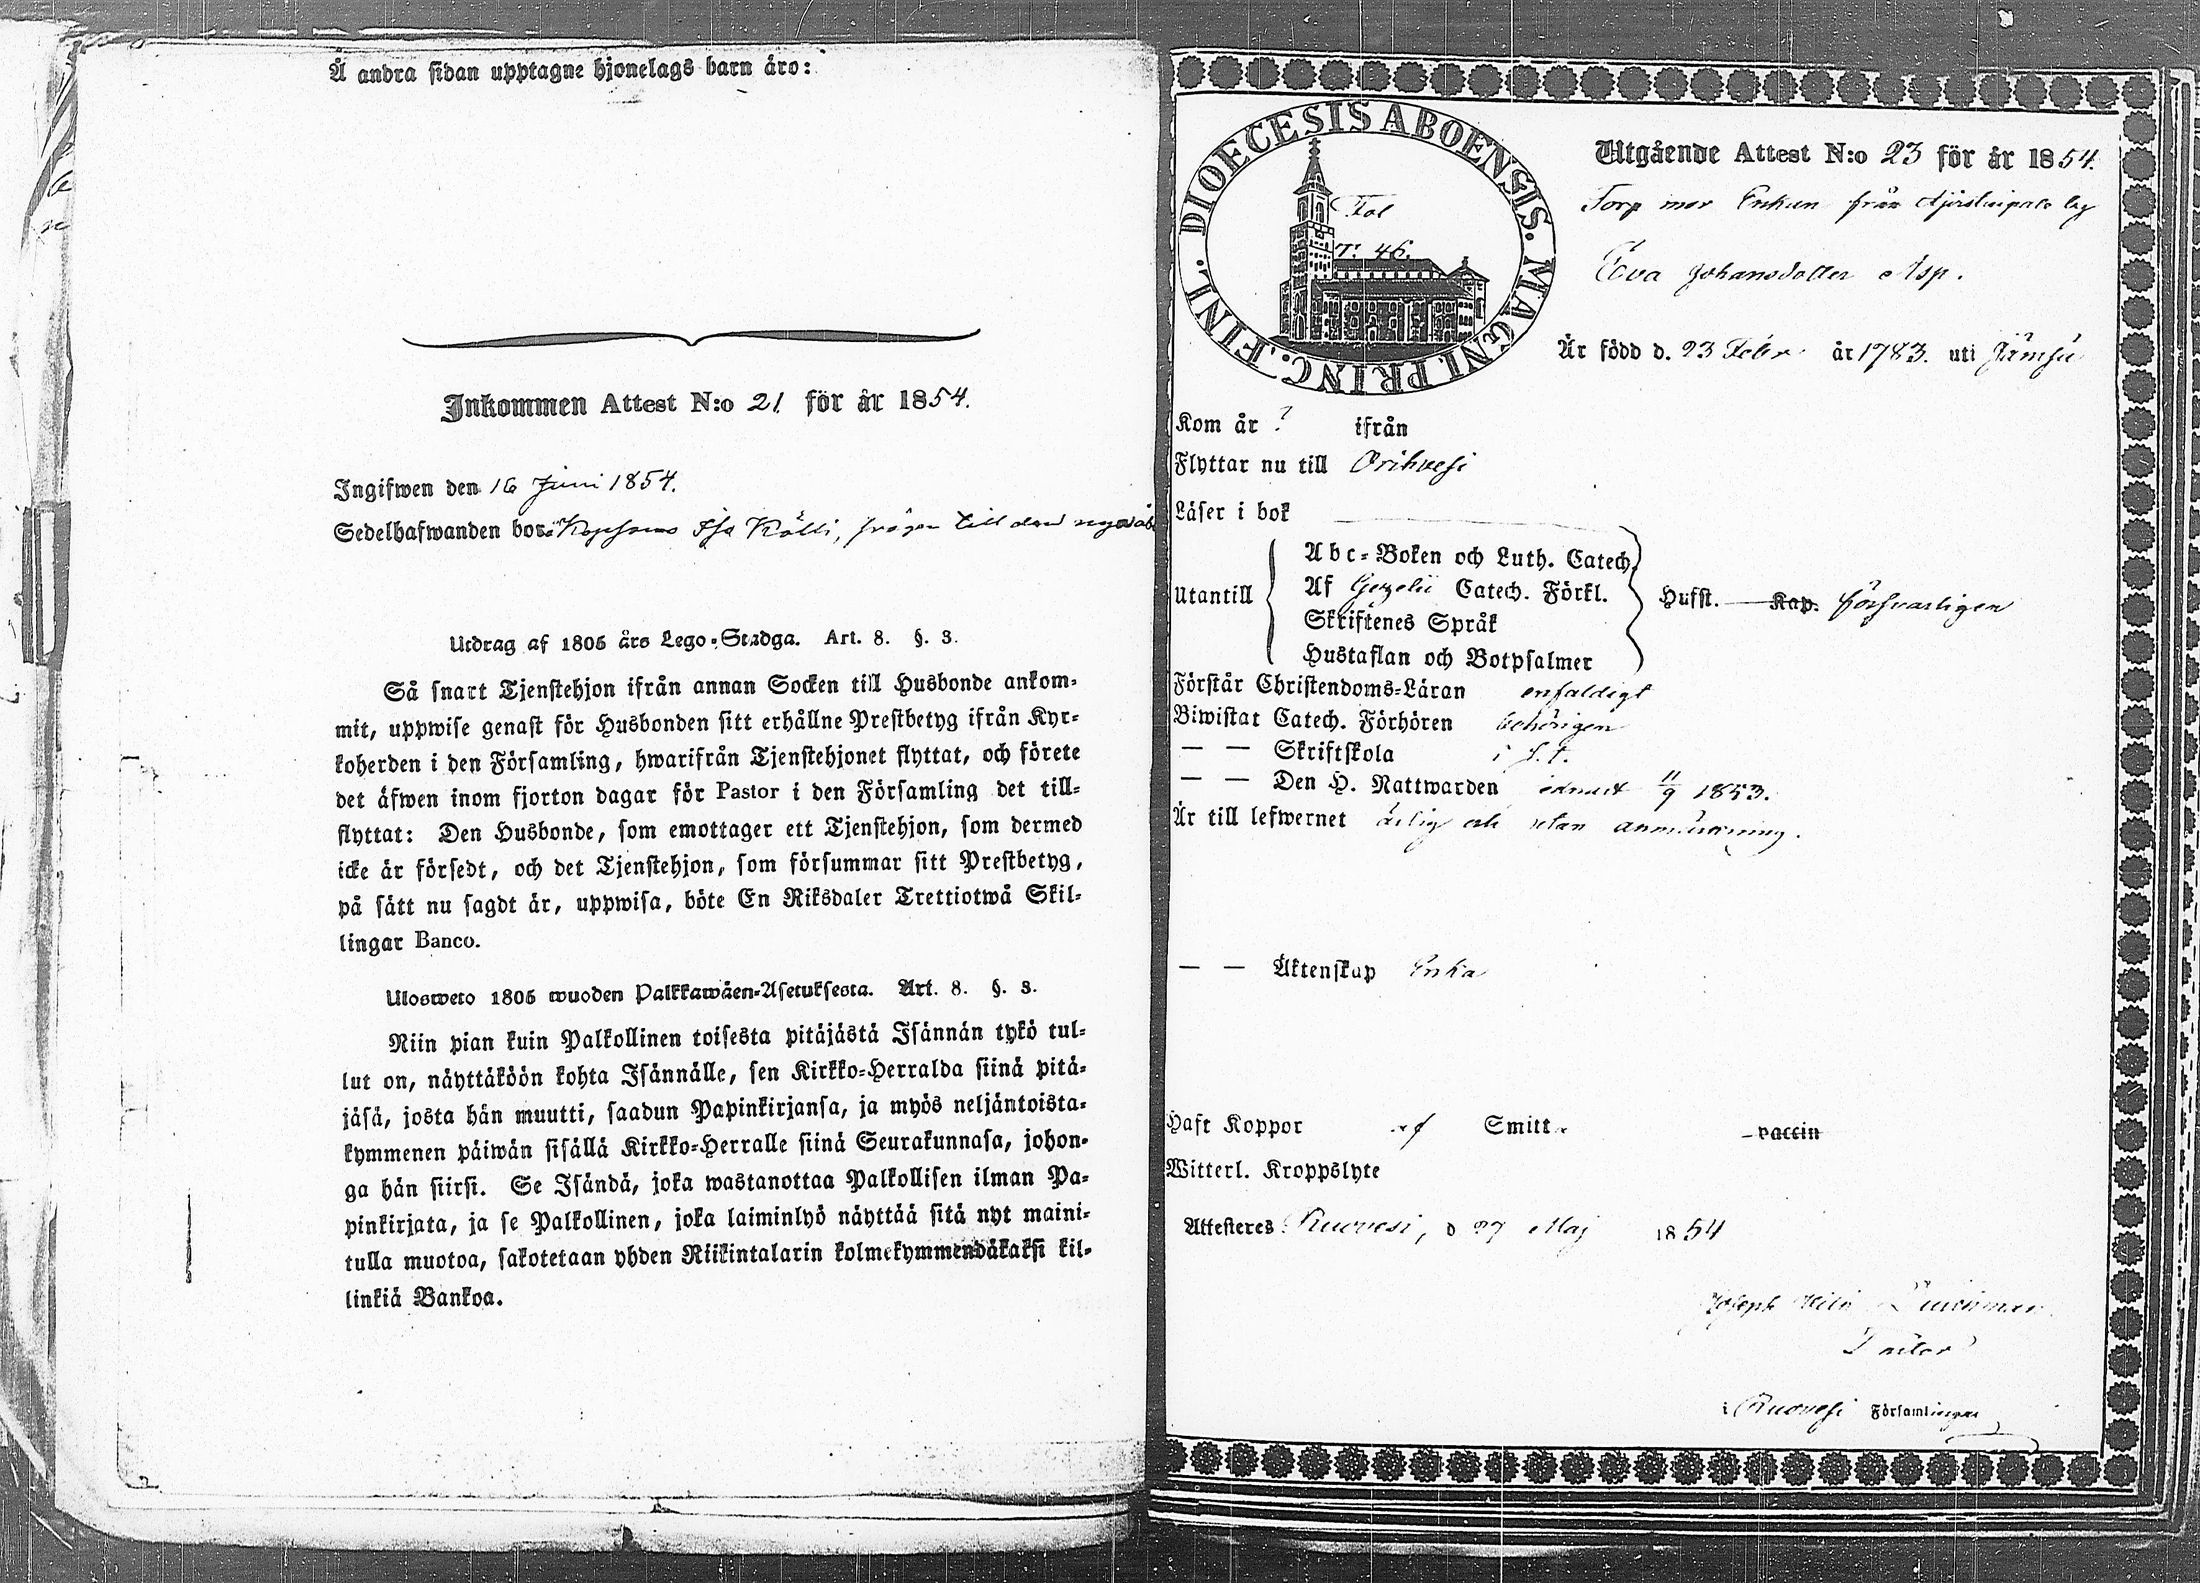 Å andra sidan upptagne hjonelags barn äro:
Inkommen Attest N:o 21 för år 1854.
Ingifwen den 16 Juni 1854.
Sedelhafwanden bor
till den
Utdrag af 1805 års Lego-Stadga. Art. 8. §. 3.
Så snart Tjenstehjon ifrån annan Socken till Husbonde ankom-
mit, uppwise genast för Husbonden sitt erhållne Prestbetyg ifrån Kyr-
koherden i den Församling, hwarifrån Tjenstehjonet flyttat, och förete
det äfwen inom fjorton dagar för Pastor i den Församling det till-
flyttat: Den Husbonde, som emottager ett Tjenstehjon, som dermed
icke är försedt, och det Tjenstehjon, som försummar sitt Prestbetyg,
på sätt nu sagdt är, uppwisa, böte En Riksdaler Trettiotwå Skil-
lingar Banco.
Ulosweto 1805 wuoden Palkkawäen-Asetuksesta. Art. 8. §. 3.
Niin pian kuin Palkollinen toisesta pitäjästä Isännän tykö tul-
lut on, näyttäköön kohta Isännälle, sen Kirkko-Herralda siinä pitä-
jäsä, josta hän muutti, saadun Papinkirjansa, ja myös neljäntoista-
kymmenen päiwän sisällä Kirkko-Herralle siinä Seurakunnasa, johon-
ga hän siirsi. Se Isändä, joka wastanottaa Palkollisen ilman Pa-
pinkirjata, ja se Palkollinen, joka laiminlyö näyttää sitä nyt maini-
tulla muotoa, sakotetaan yhden Riikintalarin kolmekymmendäkaksi kil-
linkiä Bankoa.
DIOECESIS ABOENSIS. MAGNI PRINC. FINL.
Fol
T. 46.
Utgående Attest N:o 23 för år 1854.
Torp mor Enkan från by
Eva Johansdotter Asp.
Är född d. 23 Febr år 1783. uti Jämsä
Kom år ? ifrån
Flyttar nu till Orihvesi
Läser i bok
Utantill
Abc-Boken och Luth. Catech.
Af Gezelii Catech. Förkl.
Skriftenes Språk
Hustaflan och Botpsalmer
Husfl. Kap. försvarligen
Förstår Christendoms-Läran enfaldigt
Biwistat Catech. Förhören behörigen
— — Skriftskola i s. t.
— — Den H. Nattwarden 11/9 1853.
Är till lefwernet ärlig och utan anmärkning.
— — Äktenskap Enka
Haft Koppor af Smitta — vaccin
Witterl. Kroppslyte
Attesteres Ruovesi, d 27 Maj 1854
Joseph
Pastor
i Ruovesi Församlingar